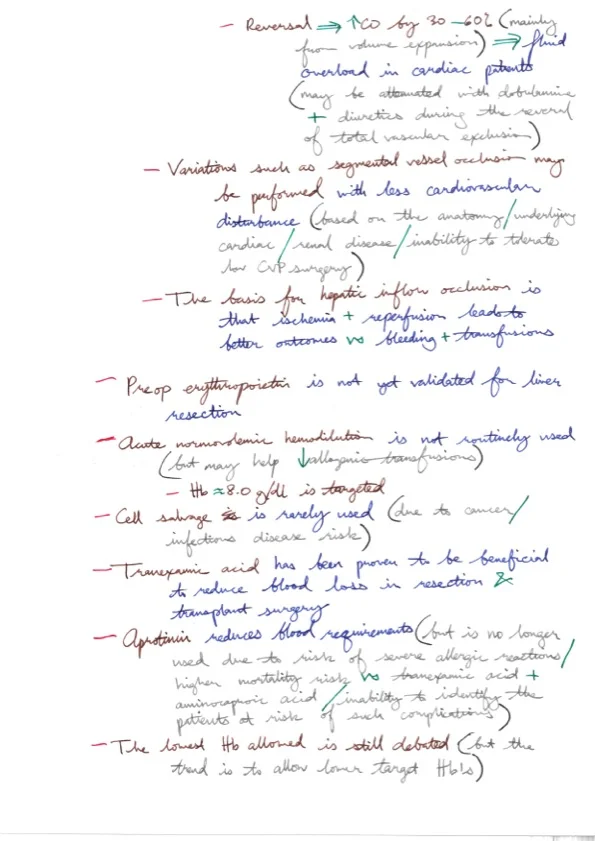 - Reversal ⇒ ↑CO by 30-60% (mainly
from volume expansion) ⇒ fluid
overload in cardiac patients
(may be attenuated with dobutamine
+ diuretics during the reversal
of total vascular exclusion)
- Variations such as segmental vessel occlusion may
be performed with less cardiovascular
disturbance (based on the anatomy/underlying
cardiac/renal disease/inability to tolerate
low CVP surgery)
- The basis for hepatic inflow occlusion is
that ischemia + reperfusion leads to
better outcomes vs bleeding + transfusions
- Preop erythropoietin is not yet validated for liver
resection
- Acute normovolemic hemodilution is not routinely used
(but may help ↓allogenic transfusions)
- Hb ≈ 8.0 g/dl is targeted
- Cell salvage is rarely used (due to cancer/
infectious disease risk)
- Tranexamic acid has been proven to be beneficial
to reduce blood loss in resection &
transplant surgery
- Aprotinin reduces blood requirements (but is no longer
used due to risk of severe allergic reactions/
higher mortality risk vs tranexamic acid +
aminocaproic acid/inability to identify the
patients at risk of such complications)
- The lowest Hb allowed is still debated (but the
trend is to allow lower target Hb's)